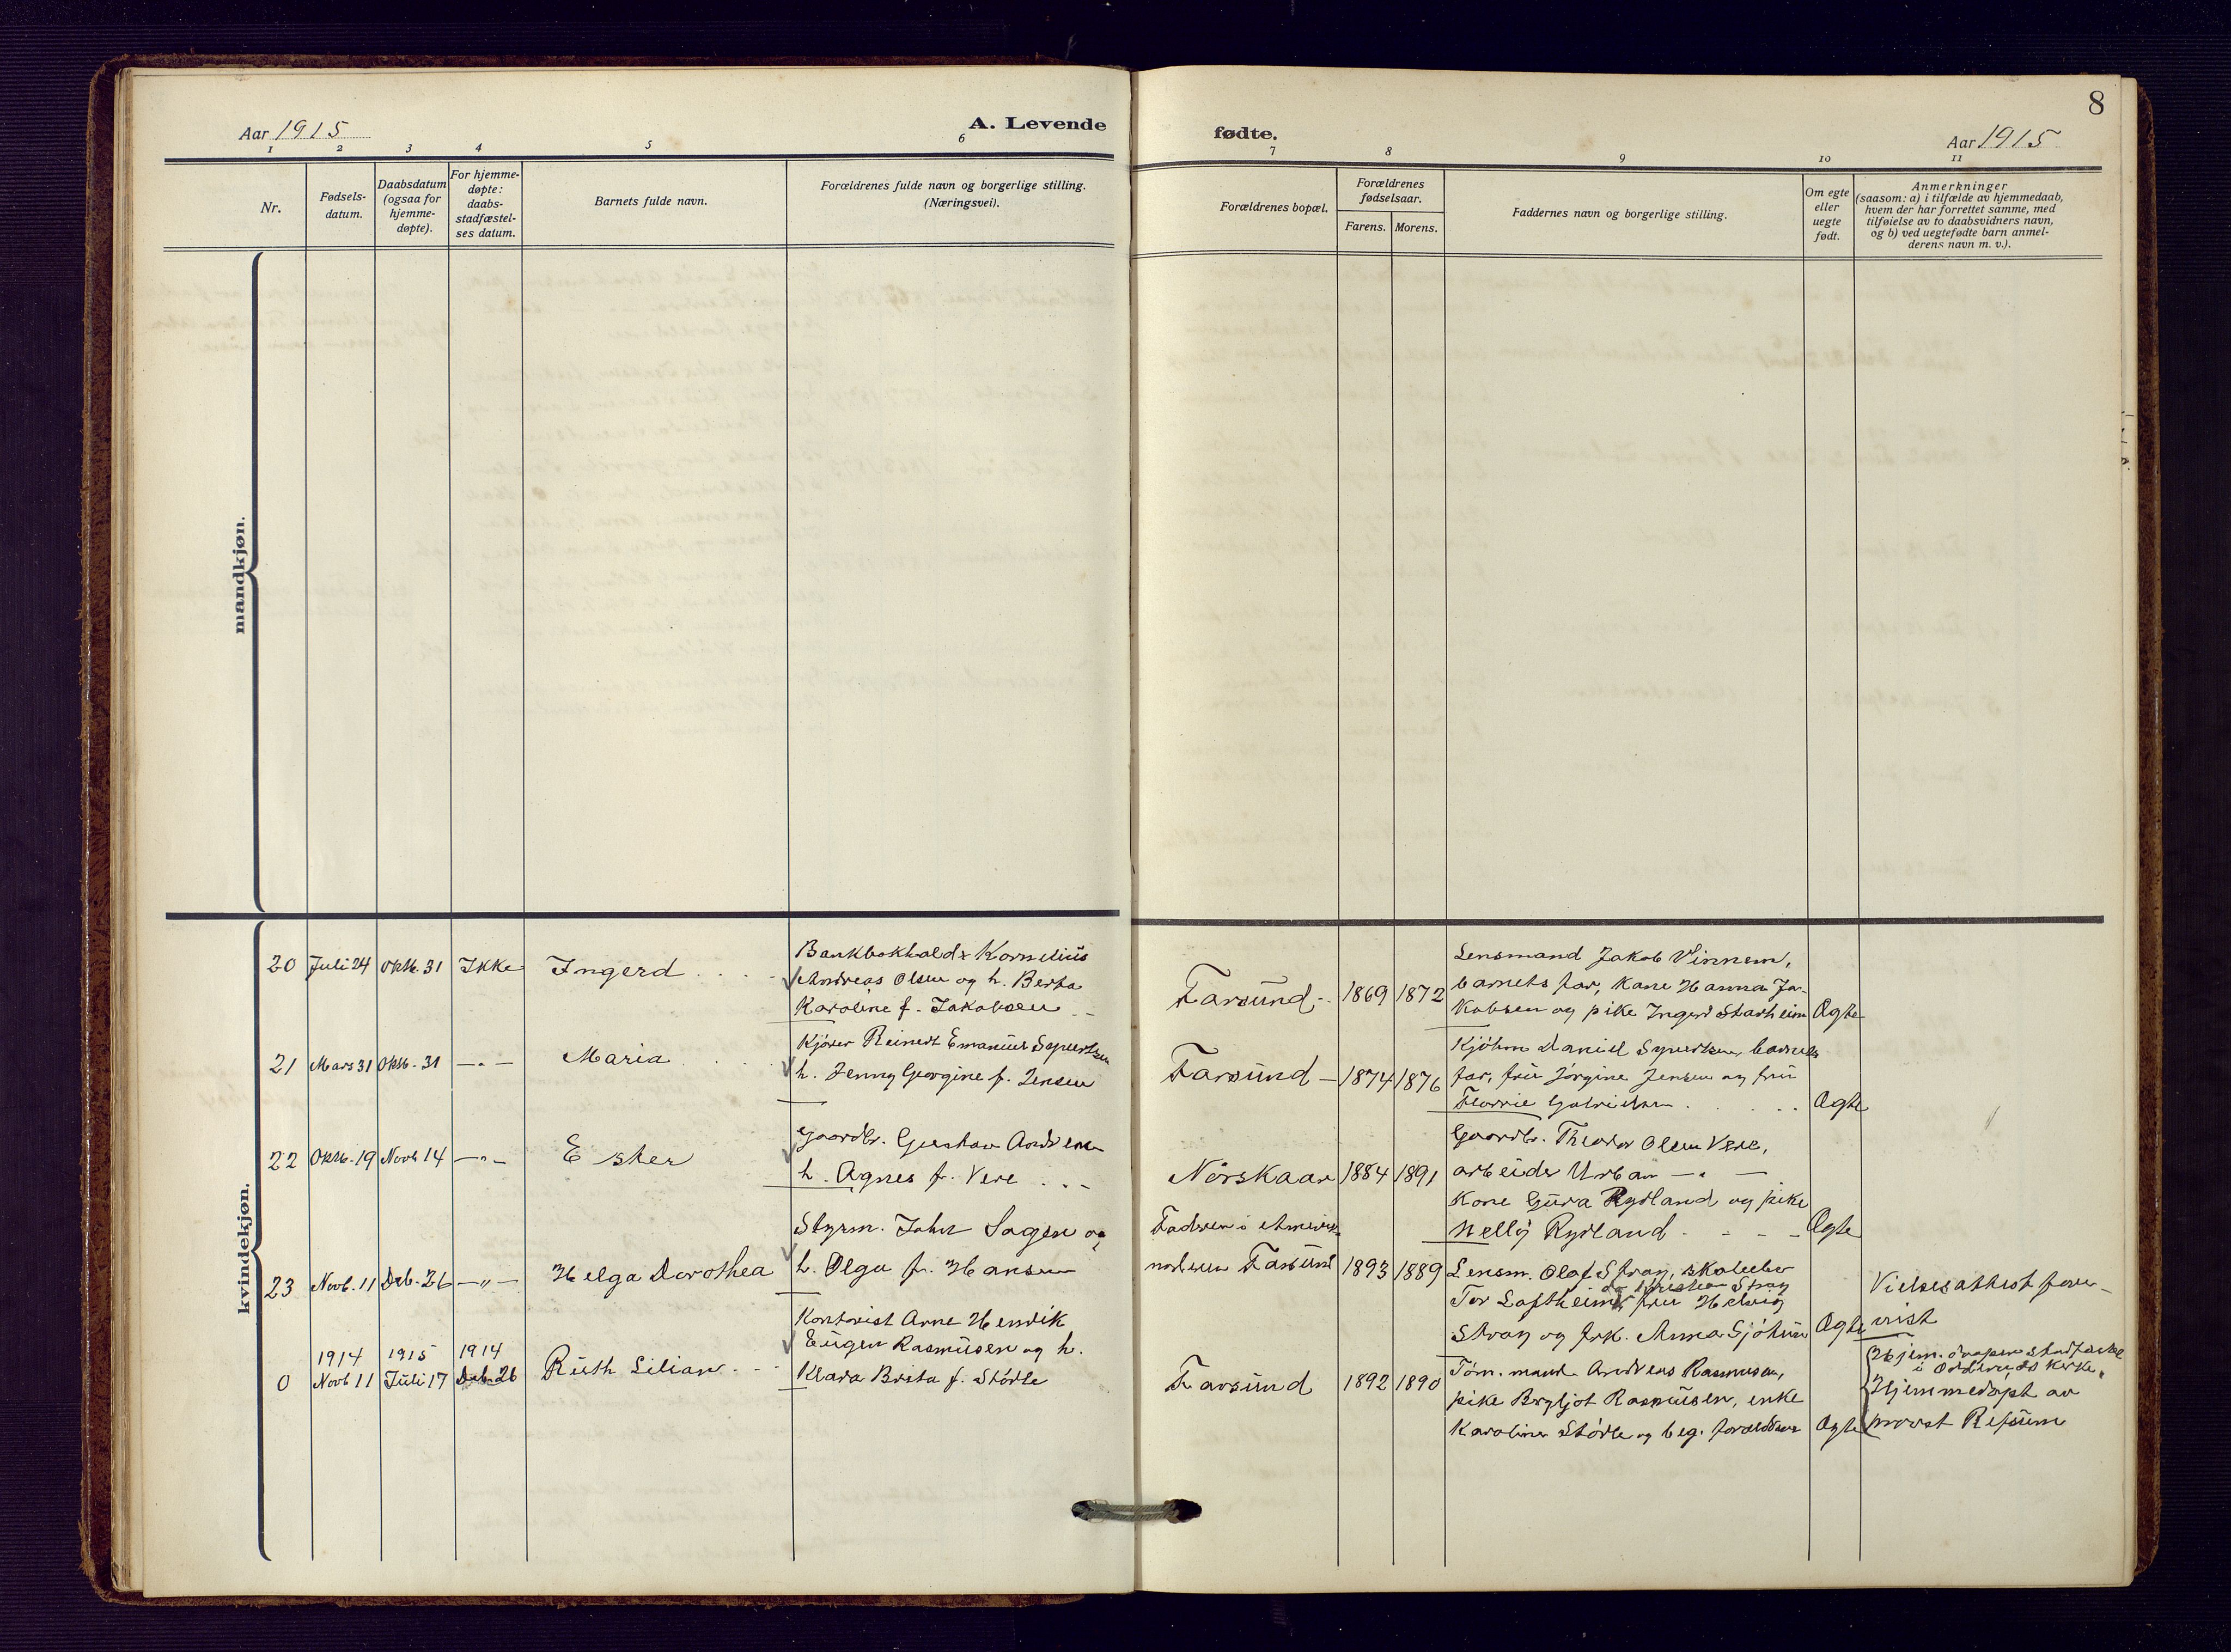 8
Aar 1915
A. Levende
fødte.
Aar 1915
1 2 3 4 5 6 7 8 9 10 11
Nr.
Fødsels-
datum.
Daabsdatum
(ogsaa for
hjemme-
døpte).
For hjemme-
døpte:
daabs-
stadfæstel-
ses datum.
Barnets fulde navn.
Forældrenes fulde navn og borgerlige stilling.
(Næringsvei).
Forældrenes bopæl.
Forældrenes
fødselsaar.
Farens. Morens.
Faddernes navn og borgerlige stilling.
Om egte
eller
uegte
født.
Anmerkninger
(saasom: a) i tilfælde av hjemmedaab,
hvem der har forrettet samme, med
tilføielse av to daabsvidners navn,
og b) ved uegtefødte barn anmel-
derens navn m. v.).
mandkjøn.
kvindekjøn.
20 Juli 24 Oktb. 31 Ikke Ingerd
Bankbokhold. Kornelius
Andreas Olsen og h. Berta
Karoline f. Jakobsen
Farsund 1869 1872
Lensmand Jakob Vinnem,
barnets far, Kone Hanna Ja-
kobsen og pike Ingerd Stadheim Ægte
21 Mars 31 Oktb. 31 —"— Maria
Reinert Emanuel Syvertsen
h. Jenny Georgine f. Jensen
Farsund 1874 1876
Kjøbm Daniel Syvertsen, barnets
far, fru Jørgine Jensen og fru
Ægte
22 Oktb. 19 Novb 14 —"— Ester
Gaardbr. Gustav Andersen
h. Agnes f. Vere
Nørskaar 1884 1891
Gaardbr. Theodor Olsen Vere,
arbeider Urban —"—
Kone Gura Rydland og pike
Nelly Rydland Ægte
23 Novb. 11 Deb. 26 —"— Helga Dorothea
Styrm. John Sagen og
h. Olga f. Hansen
Faderen i Amerika
moderen Farsund 1893 1889
Lensm. Olaf Stray, skolebe
Tor Loftheim, fru Helvig
Stray og frk. Anna Sjøhus Ægte
Vielsesattest fore-
vist
0 1914 Novb 11 1915 Juli 17 1914 Deb. 26 Ruth Lilian
Kontorist Arne Henrik
Eugen Rasmusen og h.
Klara Brita f. Størle
Farsund 1892 1890
Tøm. mand Andreas Rasmusen,
pike Bergljot Rasmusen, enke
Karoline Størle og beg. forældrene Ægte
Hjem. daapen stadfæstet
i Oddernes kirke.
Hjemmedøpt av
provst Refsum